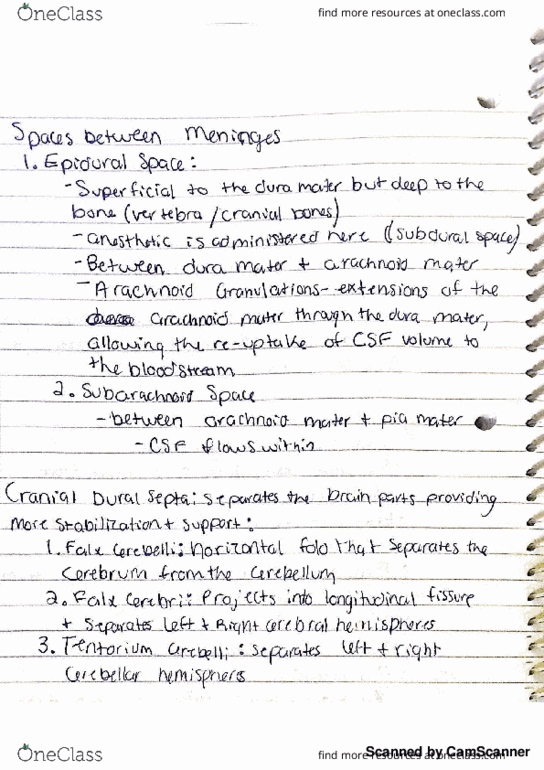 OneClass
find more resources at oneclass.com
Spaces between Meninges
1. Epidural Space:
- Superficial to the dura mater but deep to the
bone (vertebra/cranial bones)
- anesthetic is administered here (subdural space)
- Between dura mater + arachnoid mater
- Arachnoid Granulations- extensions of the
arachnoid mater through the dura mater,
allowing the re-uptake of CSF volume to
the bloodstream
2. Subarachnoid Space
- between arachnoid mater + pia mater
- CSF flows within
Cranial Dural Septa: separates the brain parts providing
more stabilization + support:
1. Falx Cerebelli: horizontal fold that separates the
cerebrum from the cerebellum
2. Falx Cerebri: Projects into longitudinal fissure
+ separates left + Right cerebral hemispheres
3. Tentorium Cerebelli: separates left + right
cerebellar hemispheres
OneClass
find more resources at oneclass.com
Scanned by CamScanner